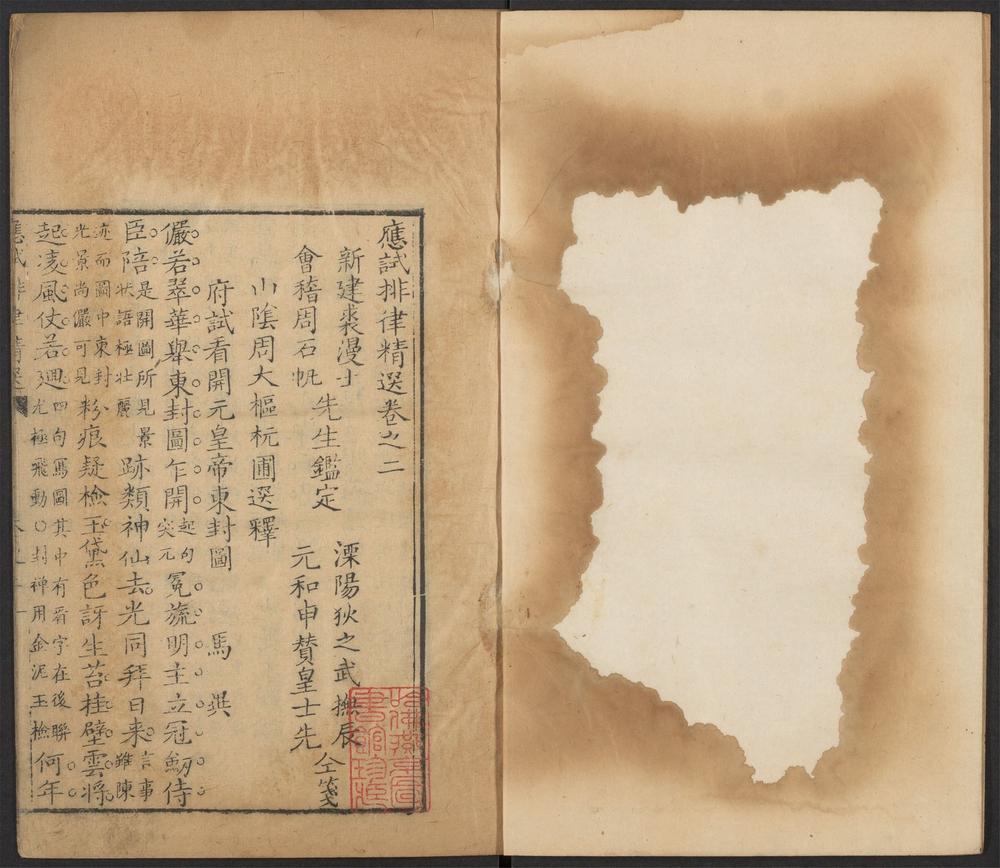 應試排律精選卷之二
新建裘漫士
會稽周石帆
先生鑑定
溧陽狄之武撫辰
元和申贊皇士先
仝箋
山陰周大樞杬圃選釋
府試看開元皇帝東封圖 馬異
儼若翠華舉東封圖乍開起句突兀冕旒明主立冠劒侍
臣陪是開圖所見景狀語極壯麗跡類神仙去光同拜日來言事雖陳
迹而圖中東封光景尚儼可見粉痕疑檢玉黛色訝生苔挂壁雲將
起凌風仗若廻四句寫圖其中有看字在後聯尤極飛動〇封禪用金泥玉檢何年
應試排律精選 卷之二 一
哈佛燕京圖書館珍藏